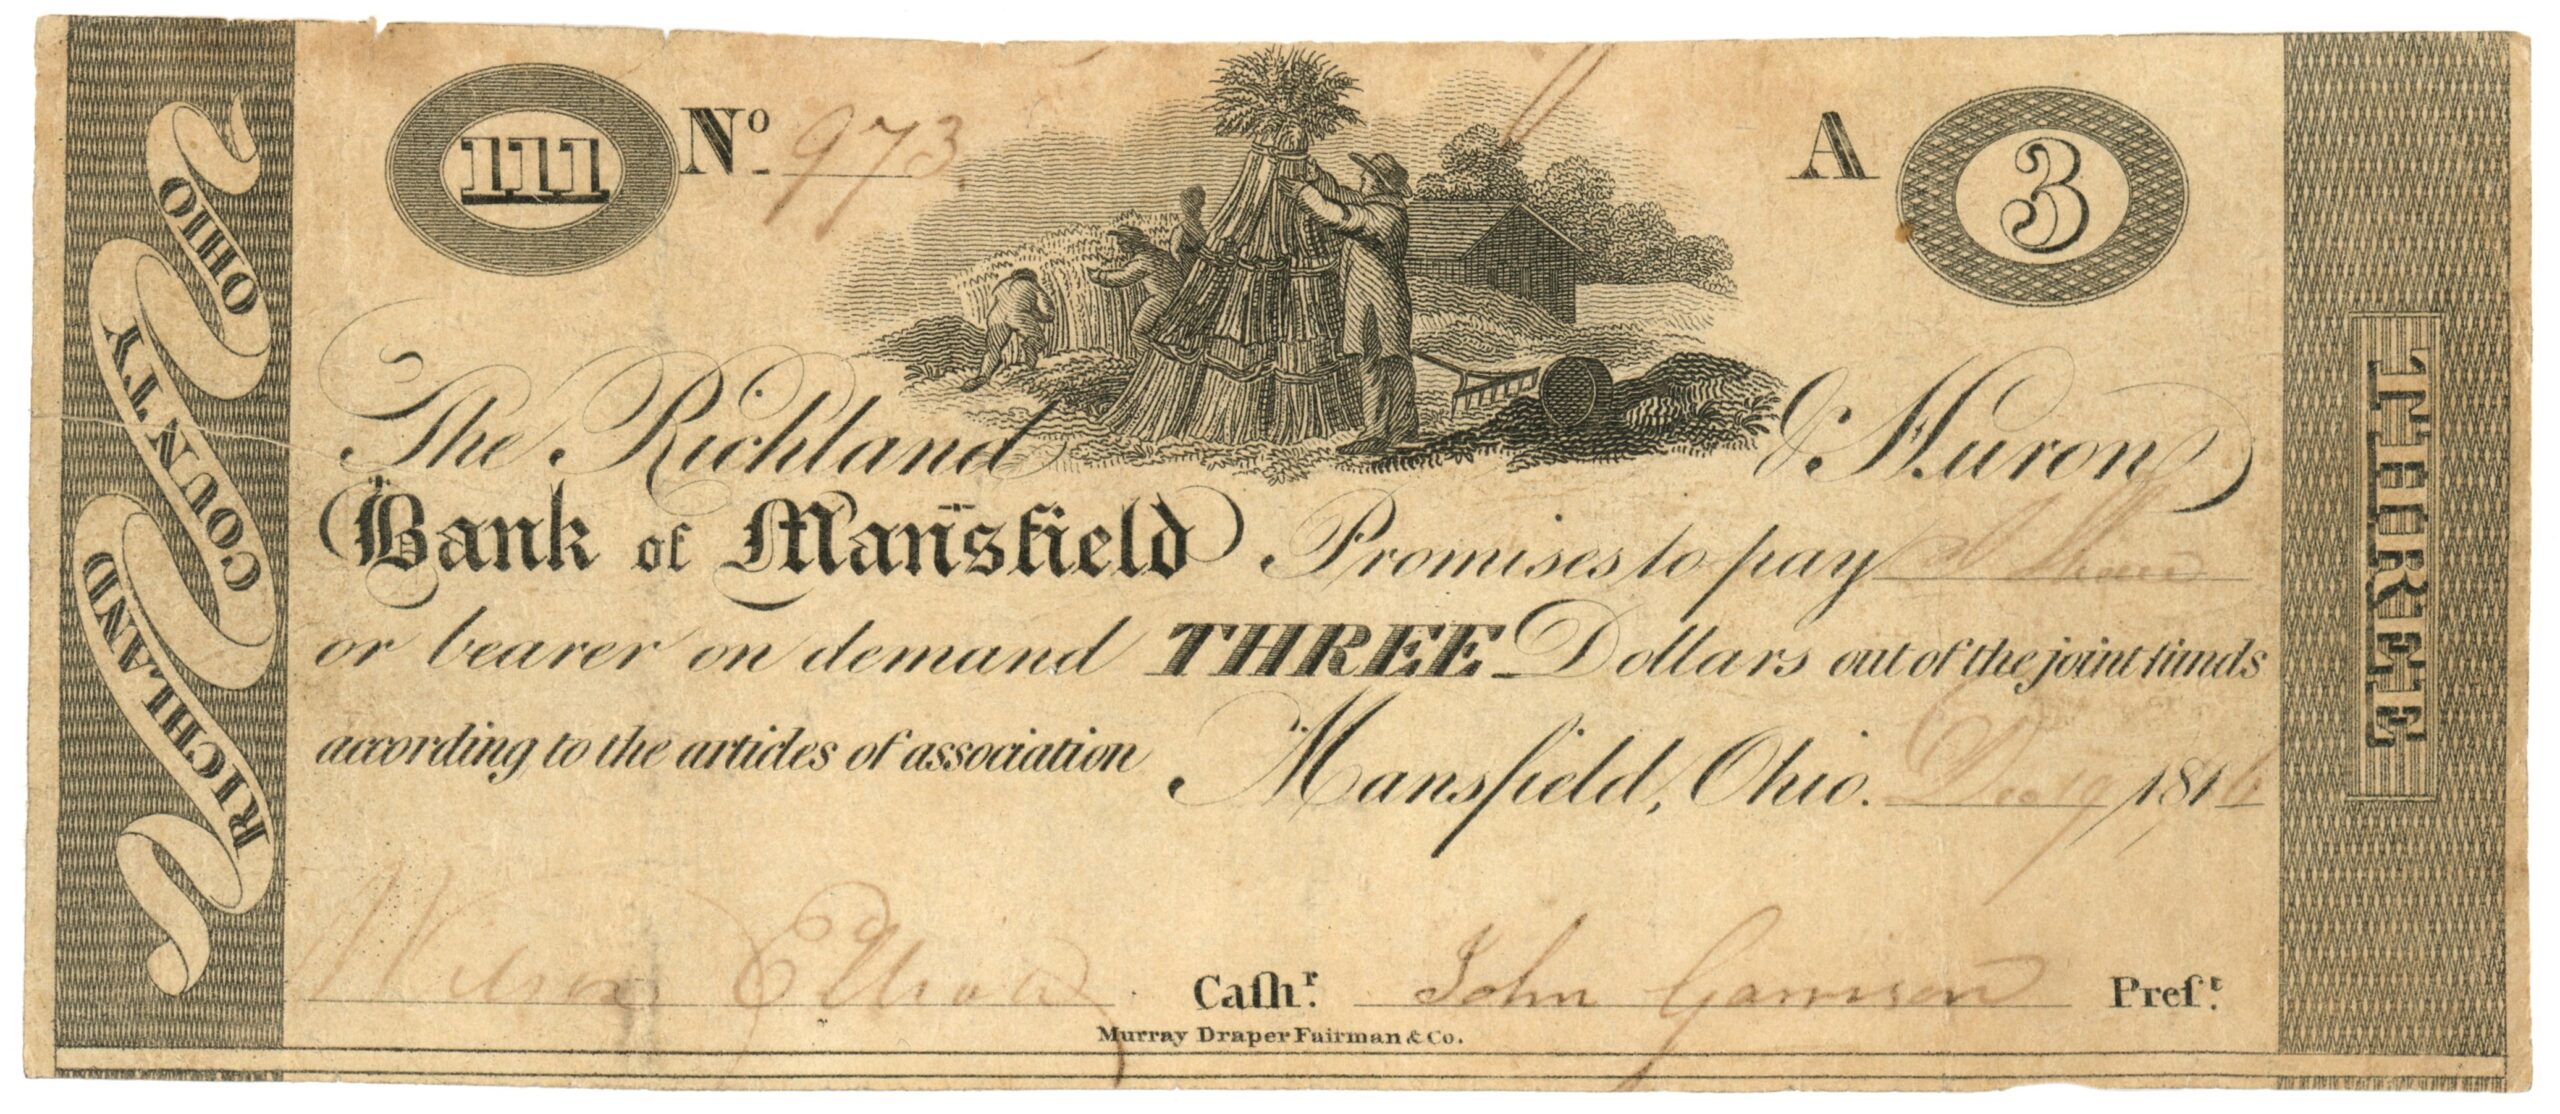 RICHLAND COUNTY OHIO
111 Nº 973. A 3
The Richland & Huron
Bank of Mansfield Promises to pay
or bearer on demand THREE Dollars out of the joint funds
according to the articles of association Mansfield, Ohio. Dec 19 1816
Wilson Elliott Caſhʳ. John Garrison Preſᵗ.
Murray Draper Fairman & Co.
THREE